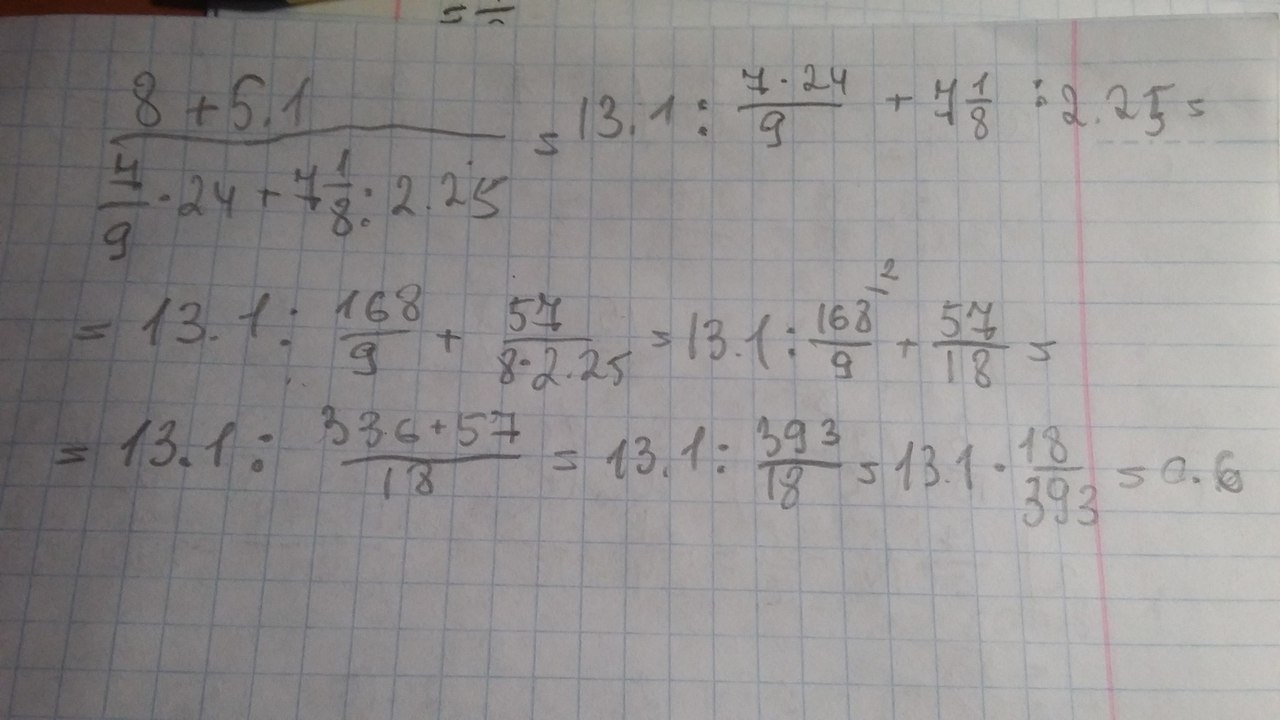 =÷
8+5.1 / (7/9 · 24 + 7 1/8 : 2.25) = 13.1 : 7·24/9 + 7 1/8 : 2.25 =
= 13.1 : 168/9 + 57/(8·2.25) = 13.1 : 168/9 ² + 57/18 =
= 13.1 : (336+57)/18 = 13.1 : 393/18 = 13.1 · 18/393 = 0.6